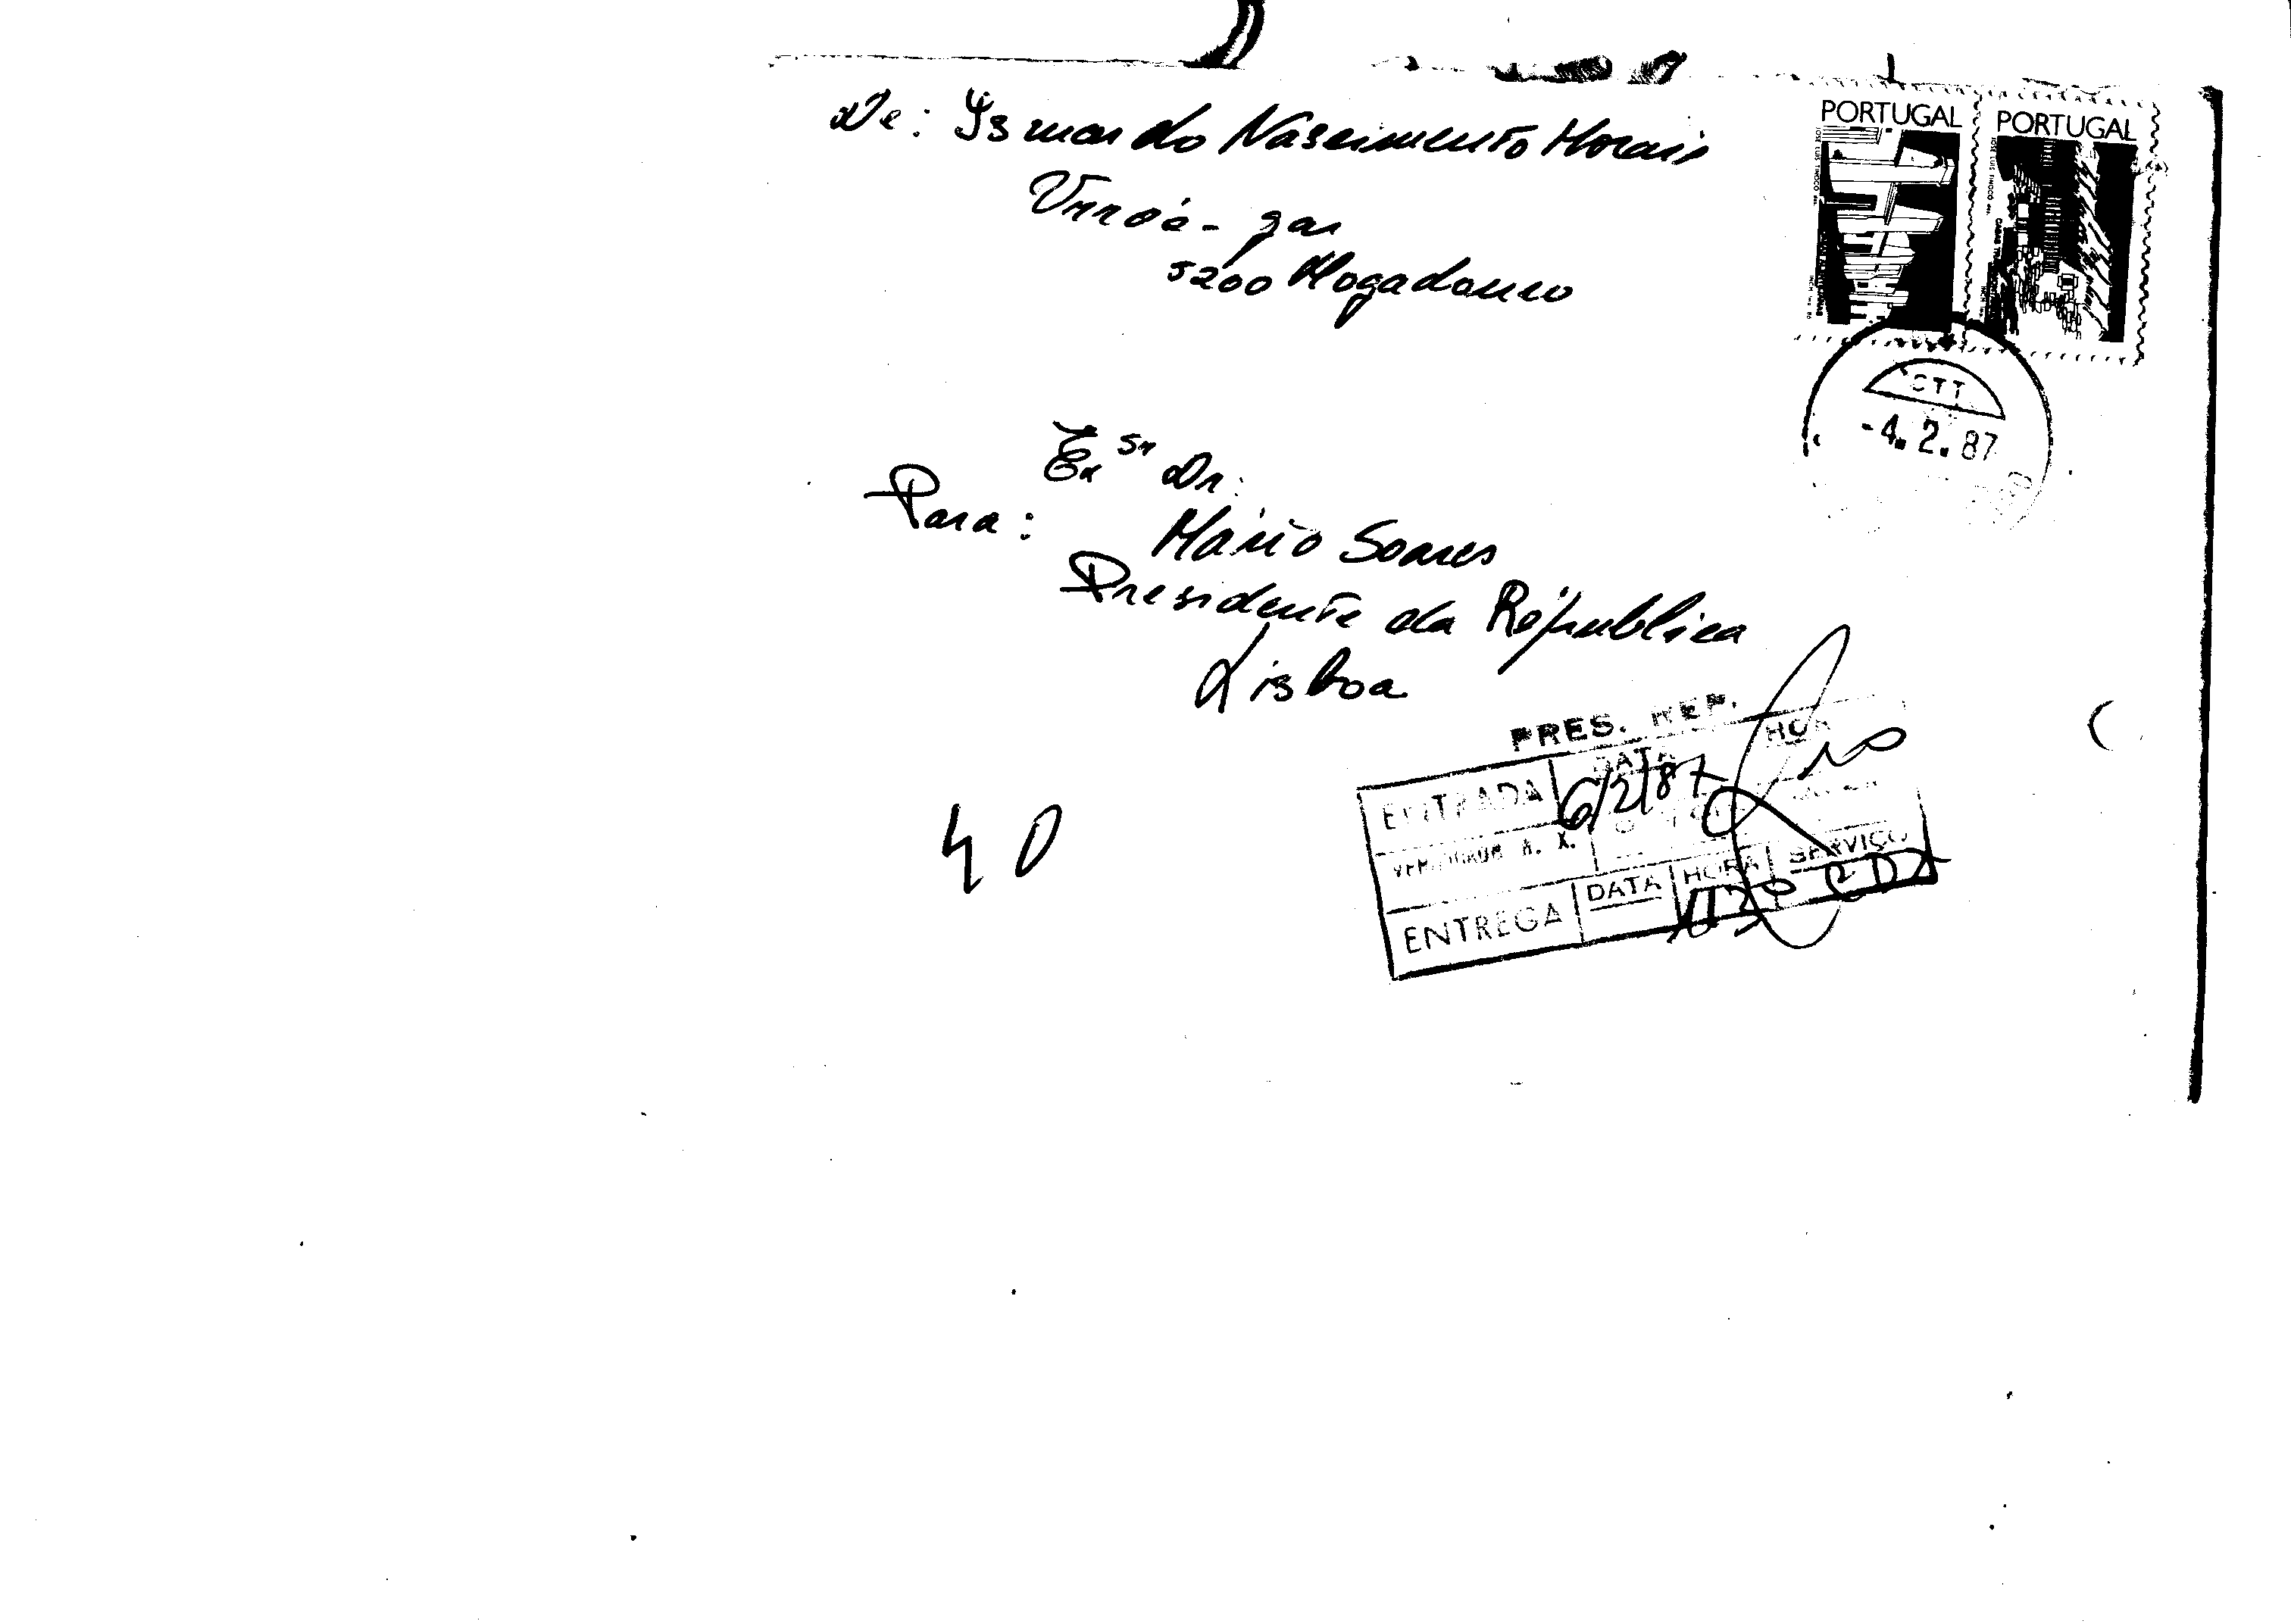 De: Ismar do Nascimento Morais
Urrós - gar
5200 Mogadouro
PORTUGAL
PORTUGAL
CTT
-4.2.87
Ex Sr Dr:
Para: Mário Soares
Presidente da Républica
Lisboa
40
PRES. REP.
ENTRADA DATA HOR
6/2/87
ENTREGA DATA HORA SERVIÇO